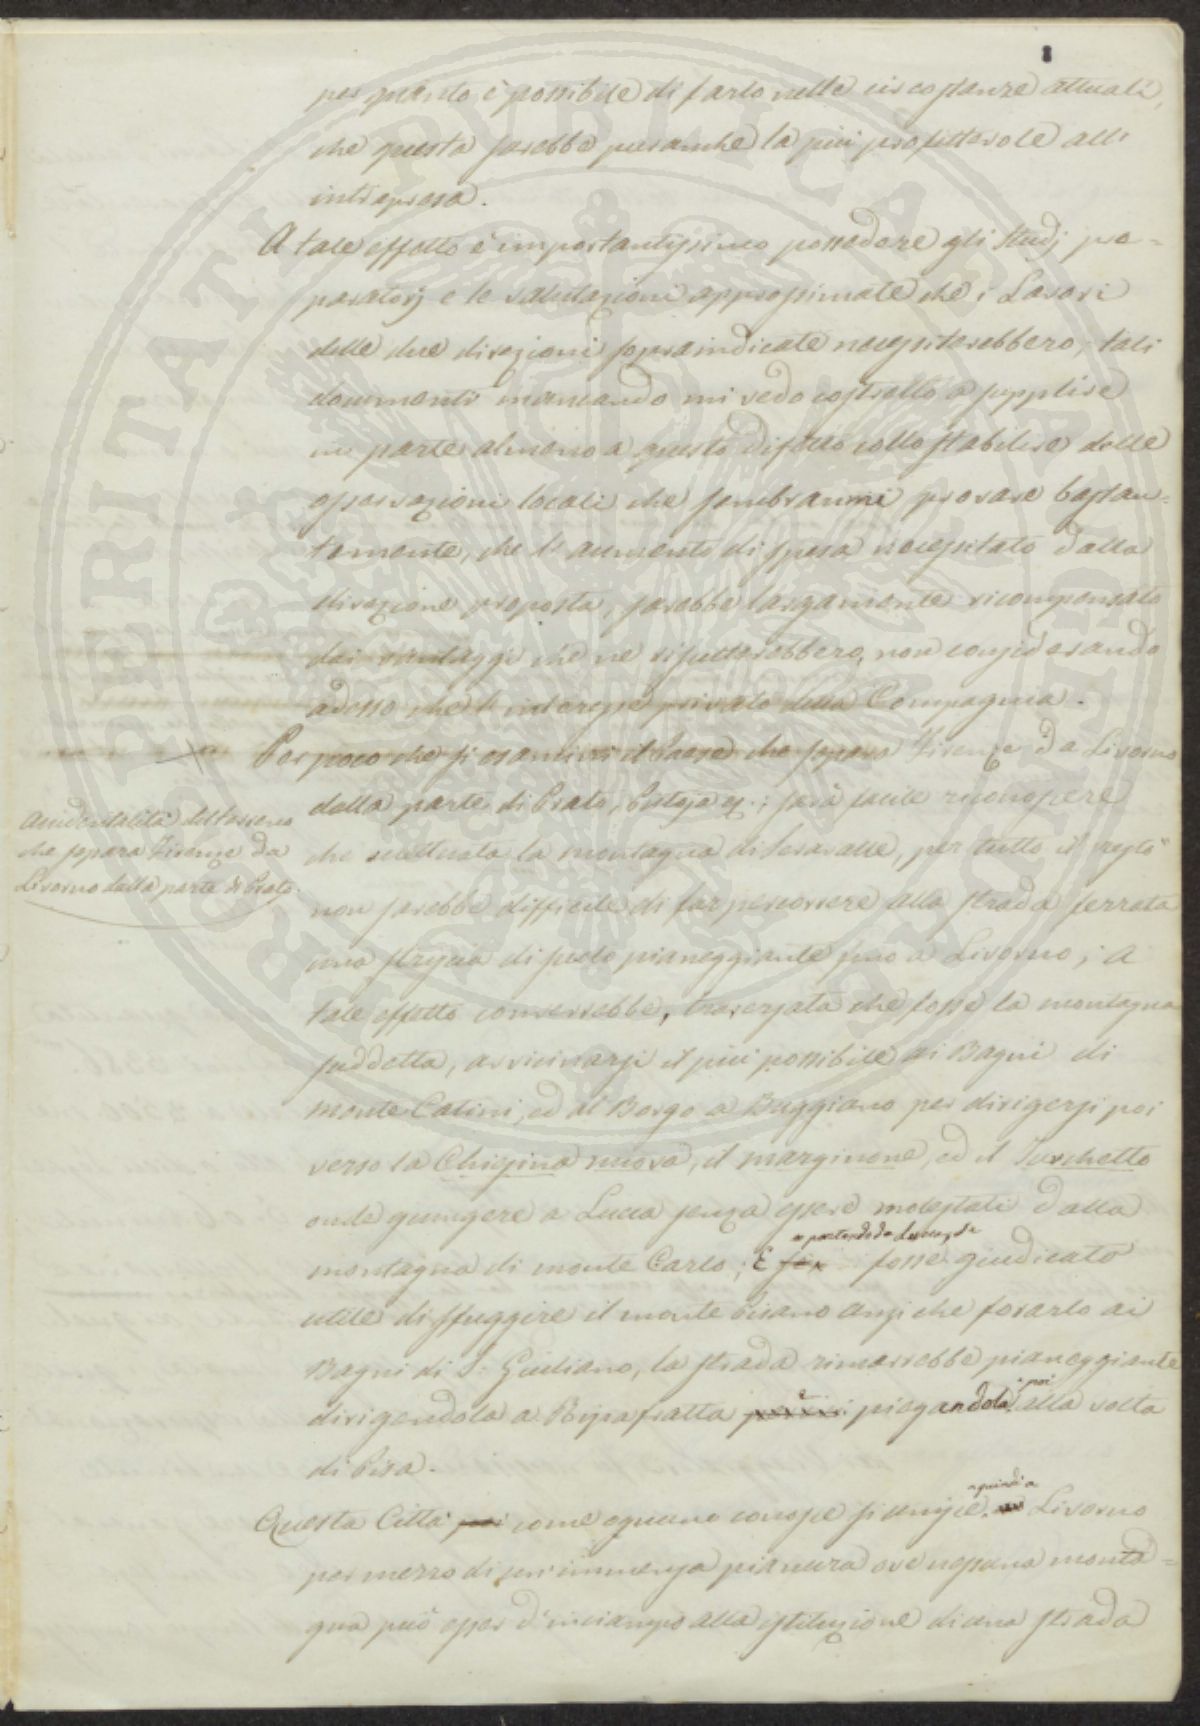 per quanto è possibile di farlo nelle circostanze attuali,
che questa sarebbe pur anche la più profittevole all'
intrapresa.
A tale effetto è importantissimo possedere gli studj pre=
paratorj e le valutazioni approssimate che i Lavori
delle due direzioni sopraindicate necessiterebbero; tali
documenti mancando mi vedo costretto a supplire
in parte almeno a questo difetto collo stabilire delle
osservazioni locali che sembranmi provare bastan=
temente, che l'aumento di spesa necessitato dalla
direzione proposta, sarebbe largamente ricompensato
dai vantaggi che ne risulterebbero, non considerando
adesso che l'interesse privato della Compagnia.
Per poco che si esamini il Paese che separa Firenze da Livorno
dalla parte di Prato, Pistoja &.; sarà facile riconoscere
che eccettuata la montagna di Seravalle, per tutto il resto
non sarebbe difficile di far percorrere alla strada ferrata
una striscia di suolo pianeggiante fino a Livorno; a
tale effetto converrebbe, traversata che fosse la montagna
suddetta, avvicinarsi il più possibile ai Bagni di
monte Catini, ed al Borgo a Buggiano per dirigersi poi
verso la Chiesina nuova, il marginone, ed il Turchetto
onde giungere a Lucca senza essere molestati dalla
montagna di monte Carlo; E partendo da Lucca, se fosse giudicato
utile di sfuggire il monte Pisano anzi che forarlo ai
Bagni di S. Giuliano, la strada rimarrebbe pianeggiante
dirigendola a Ripafratta e piegandola poi alla volta
di Pisa.
Questa Città poi come ognuno conosce si unisce quindi a Livorno
per mezzo di un'immensa pianura ove nessuna monta=
gna può esser d'inciampo alla istituzione di una strada
Accidentalità del terreno
che separa Firenze da
Livorno dalla parte di Prato.
PERITATI PUBLICAE